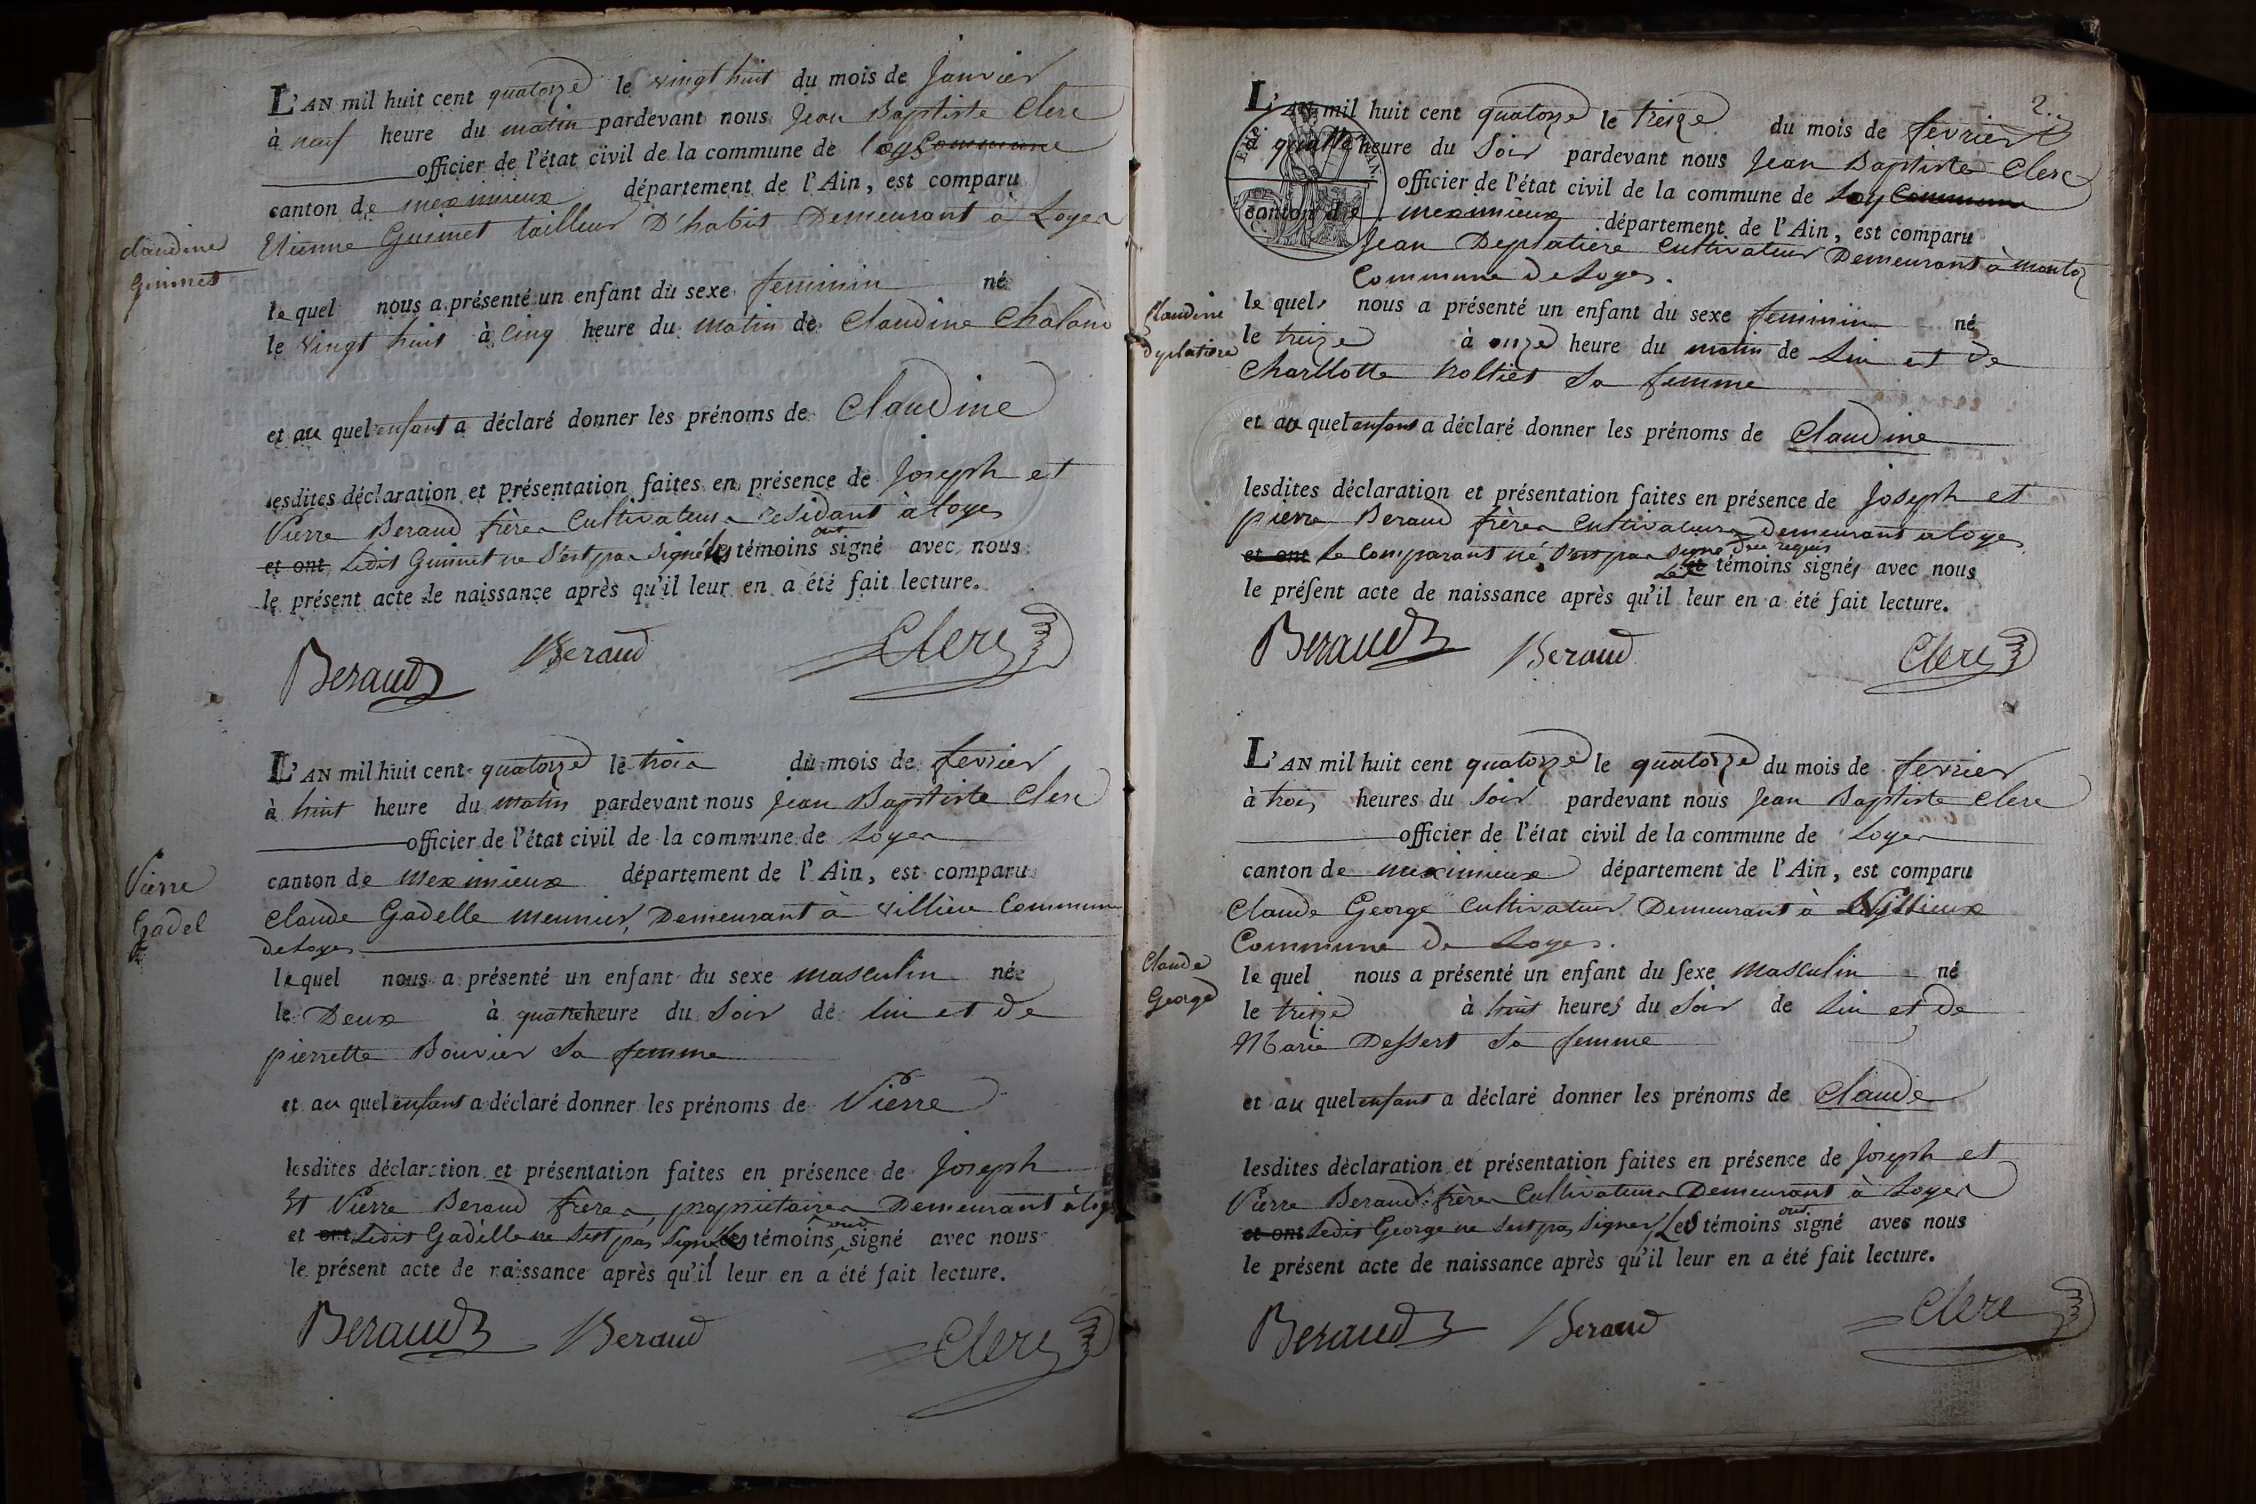 L'AN mil huit cent quatorze le vingt huit du mois de Janvier
à neuf heure du matin pardevant nous Jean Baptiste Clerc
officier de l'état civil de la commune de Loyes
canton de meximieux département de l'Ain, est comparu
Etienne Guinet tailleur D'habit Demeurant à Loyes
claudine
guinet
le quel nous a présenté un enfant du sexe feminin né
le vingt huit à cinq heure du matin de Claudine Chaland
et au quel enfant a déclaré donner les prénoms de Claudine
lesdites déclaration et présentation faites en présence de Joseph et
Pierre Beraud frères Cultivateurs residant à loyes
et ont Ledit Guinet ne s'est pas signé Les témoins ont signé avec nous
le présent acte de naissance après qu'il leur en a été fait lecture.
Beraud Beraud Clerc
L'AN mil huit cent quatorze le trois du mois de fevrier
à huit heure du matin pardevant nous Jean Baptiste Clerc
officier de l'état civil de la commune de Loyes
canton de meximieux département de l'Ain, est comparu
Pierre
Gadel
Claude Gadelle meunier, Demeurant à villieu Commune
de Loyes
le quel nous a présenté un enfant du sexe masculin né
le Deux à quatre heure du Soir de lui et De
pierrette Bouvier Sa femme
et au quel enfant a déclaré donner les prénoms de Pierre
lesdites déclaration et présentation faites en présence de Joseph
Et Pierre Beraud frères propriétaires Demeurant à loyes
et ont Ledit Gadelle ne s'est pas signé Les témoins ont signé avec nous
le présent acte de naissance après qu'il leur en a été fait lecture.
Beraud Beraud Clerc
2
L'AN mil huit cent quatorze le treize du mois de fevrier
à quatre heure du Soir pardevant nous Jean Baptiste Clerc
officier de l'état civil de la commune de Loy Commune
canton de meximieux département de l'Ain, est comparu
Jean Deplatiere Cultivateur Demeurant à
Commune de Loyes.
Claudine
dyplatiere
le quel nous a présenté un enfant du sexe feminin né
le treize à onze heure du matin de Lui et De
Charllotte Sa femme
et au quel enfant a déclaré donner les prénoms de Claudine
lesdites déclaration et présentation faites en présence de Joseph et
pierre Beraud frères Cultivateurs Demeurant à loyes
et ont Le Comparant ne s'est pas signé requis
Les témoins signés avec nous
le présent acte de naissance après qu'il leur en a été fait lecture.
Beraud Beraud Clerc
L'AN mil huit cent quatorze le quatorze du mois de fevrier
à trois heures du Soir pardevant nous Jean Baptiste Clerc
officier de l'état civil de la commune de Loyes
canton de meximieux département de l'Ain, est comparu
Claude George Cultivateur Demeurant à Villieux
Commune De Loyes.
Claude
George
le quel nous a présenté un enfant du sexe masculin né
le treize à huit heures du Soir de Lui et De
Marie Dessert Sa femme
et au quel enfant a déclaré donner les prénoms de Claude
lesdites déclaration et présentation faites en présence de Joseph et
Pierre Beraud frères Cultivateurs Demeurant à Loyes
et ont Ledit George ne s'est pas signer Les témoins ont signé avec nous
le présent acte de naissance après qu'il leur en a été fait lecture.
Beraud Beraud Clerc